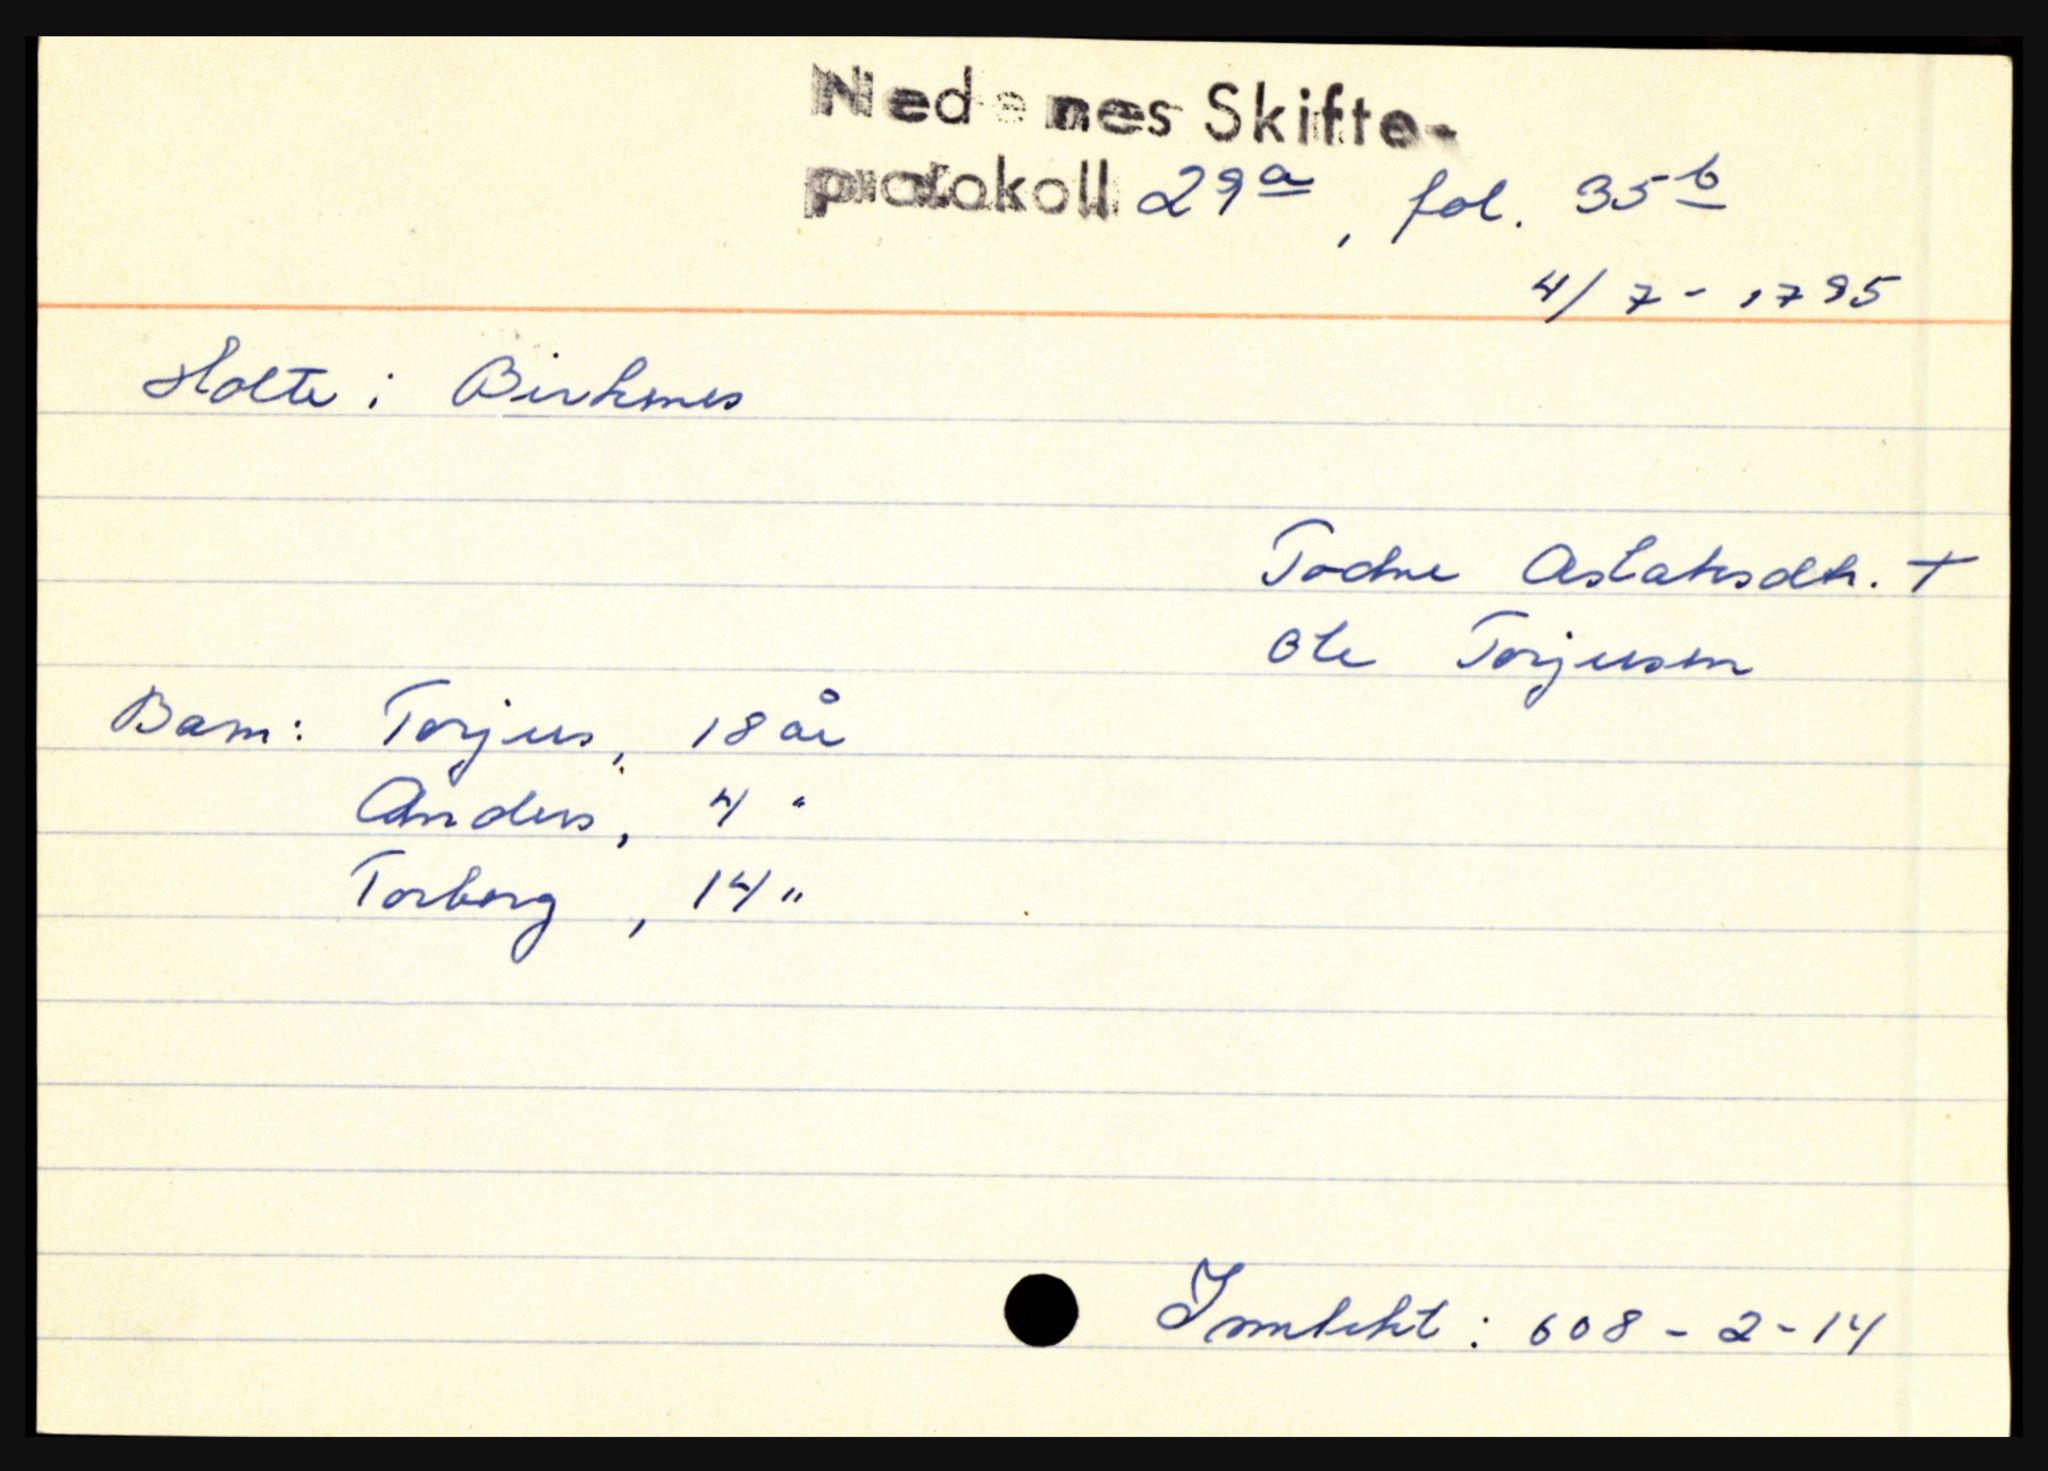 Nedenes Skifte-
protokoll 29a, fol. 35b
4/7-1795
Holte i Birkenes
Todne Aslaksdtr. +
Ole Torjusen
Barn: Torjus, 18 år
Anders, 4 "
Torborg, 14 "
Innteht: 608-2-14